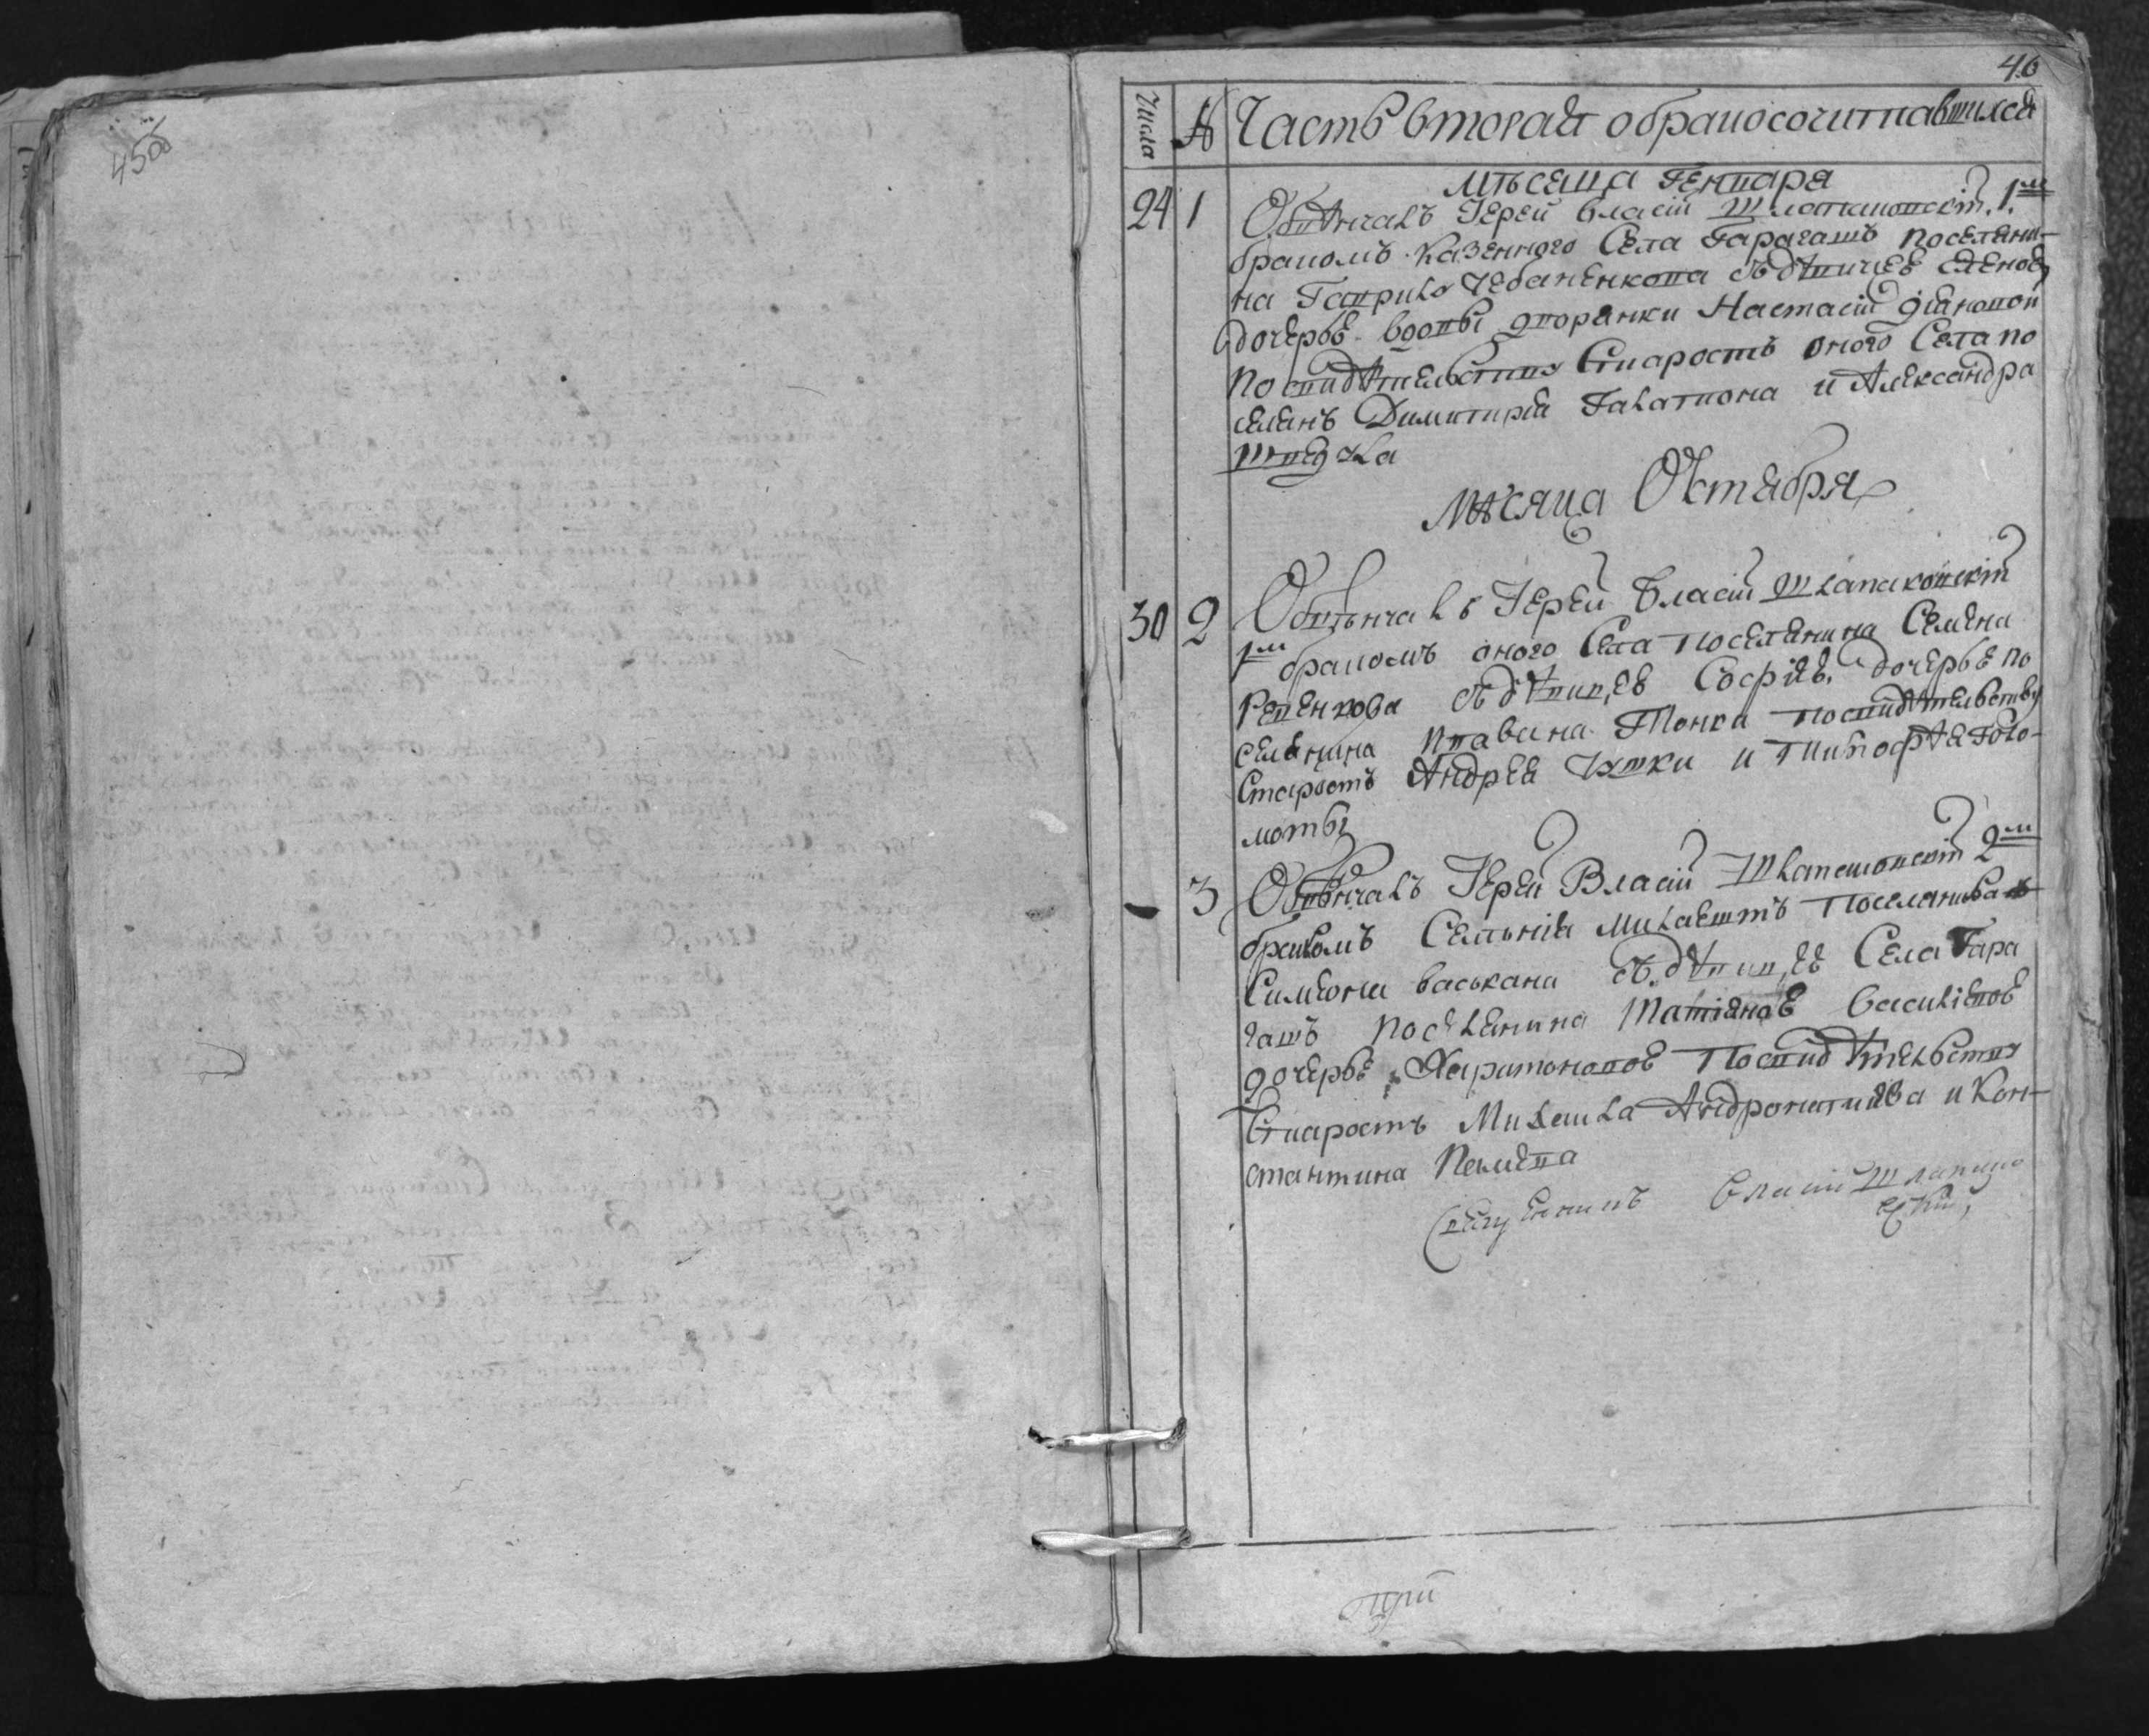 45об
46
Числа № Часть вторая обракосочитавшихся
Мѣсяца Генваря
24 1 Обвѣнчалъ Іерей Власій Шлапаковскій 1.м
бракомъ казенного Села Карагашъ поселяни-
на Гаврила Чебаненкова съ дѣвицеѣ
дочерьѣ вдовы дворянки Настасіи Діяновой
По свидѣтельству Старостъ оного Села по
селянъ Димитрія Галатнона и Александра
Шведула
Мѣсяца Октября
30 2 Обвѣнчалъ Іерей Власій Шлапаковскій
1м бракомъ оного Села поселянина Семена
Ревенкова съ дѣвицеѣ Софіеѣ дочерьѣ по
селянина Тонки посвидѣтельству
Старостъ Андрея Чушки и Тимофѣя Голо-
моты
3 Обвѣнчалъ Іерей Власій Шлапаковскій 2м
бракомъ Селенія Милаештъ Поселянина
Симеона васькана съ дѣвицеѣ Села Кара
гашъ поселянина Татіяноѣ Василіевоѣ
дочерьѣ Харитоновоѣ Посвидѣтельству
Старостъ Михаила Андронатиева и Кон-
стантина
Священникъ Власій Шлапако
вскій